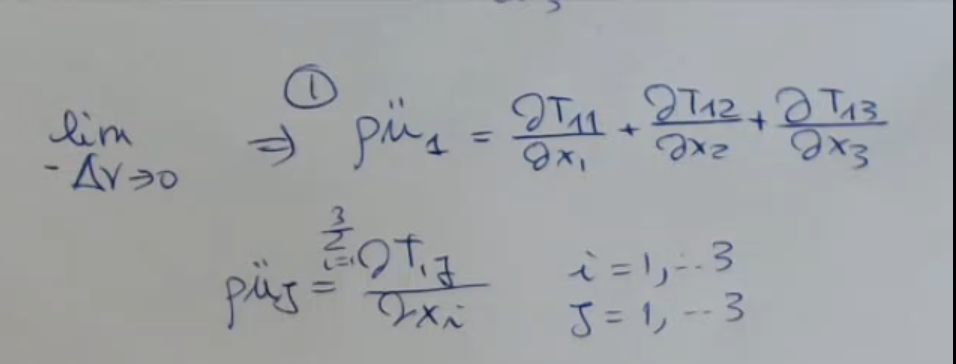 ① 
lim -ΔV→0 ⇒ ρü₁ = ∂T₁₁/∂x₁ + ∂T₁₂/∂x₂ + ∂T₁₃/∂x₃
ρü_J = Σ_{i=1}^{3} ∂T_{iJ}/∂x_i i = 1, ... 3
J = 1, ... 3